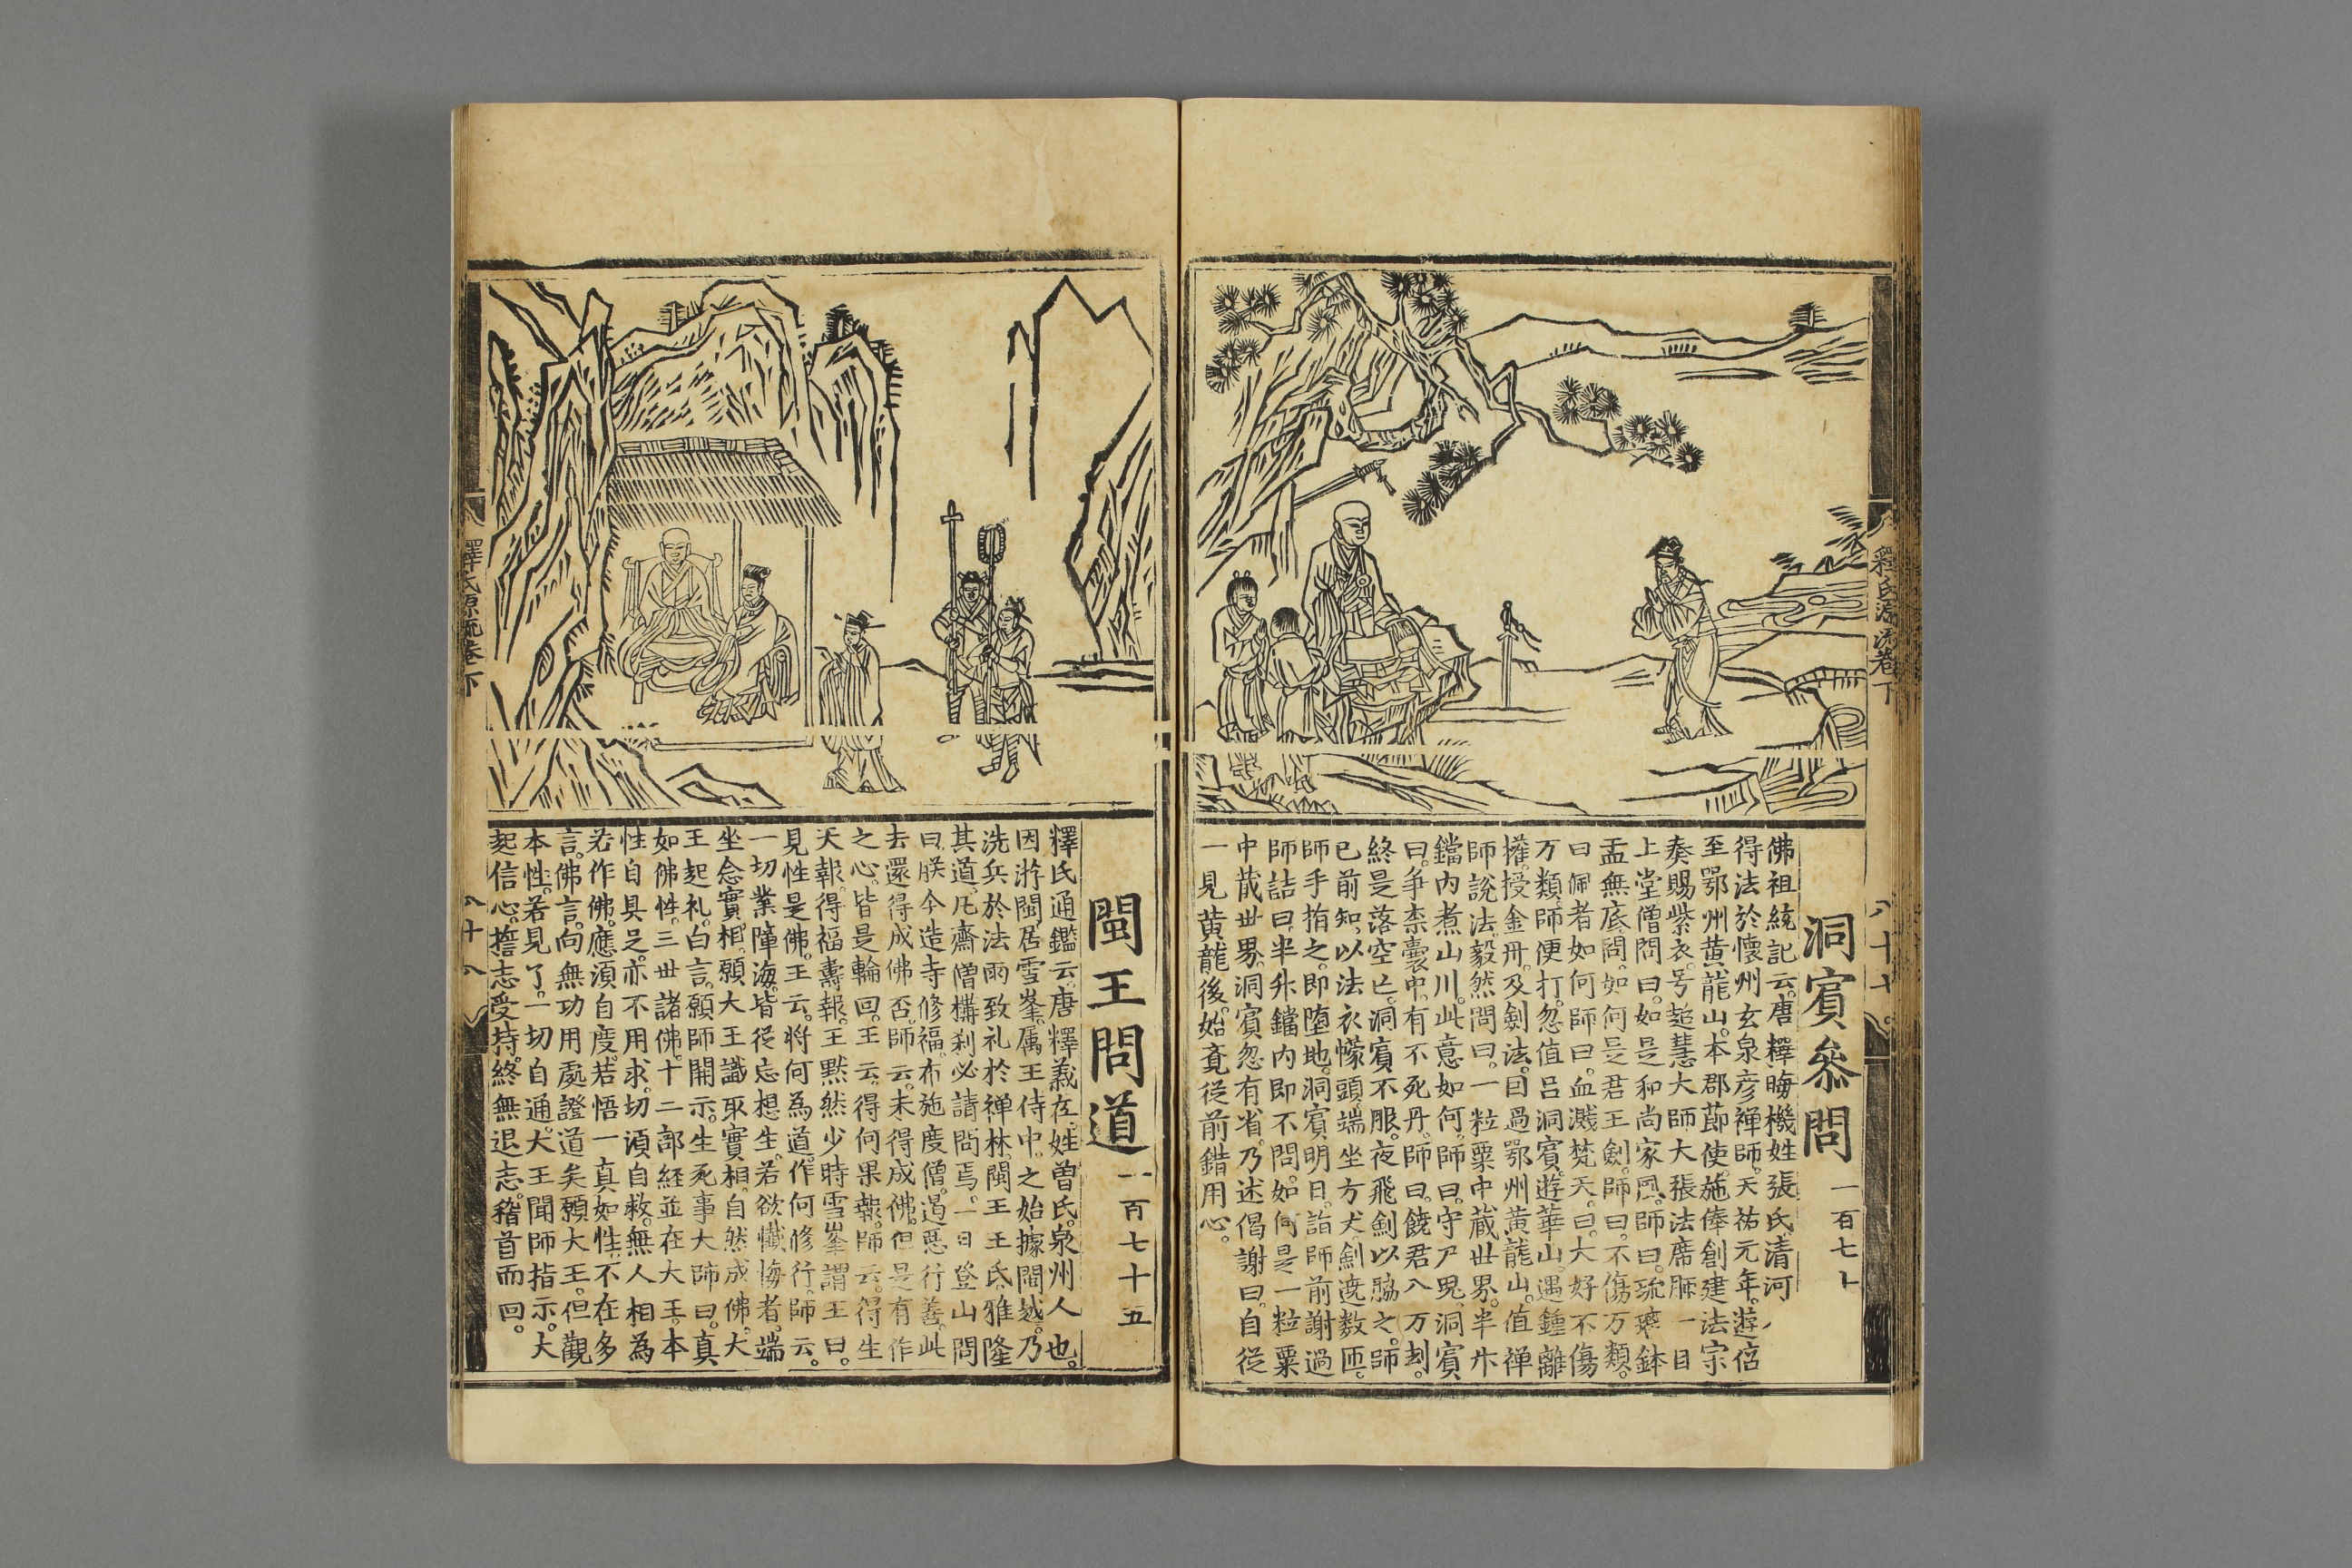 釋氏源流卷下
洞賓叅問
一百七
佛祖統記云。唐釋晦機姓張氏。清河
得法於懷州玄泉彦禅師。天祐元年。遊
至鄂州黄龍山。本郡莭使。施俸創建法宗
奏賜紫衣。号超慧大師大張法席。一日
上堂僧問曰。如是和尚家風。師曰。琉璃鉢
盂無底。問。如何是君王劍。師曰。不傷万類。
曰佩者如何師曰。血濺梵天。曰。大好不傷
万類師便打。忽值吕洞賓。遊華山。遇鍾離
權。授金丹。及劍法。因過鄂州黄龍山。值禅
師說法。毅然問曰。一粒粟中蔵世界。半升
鐺内煮山川。此意如何。師曰。守尸鬼。洞賓
曰。争柰囊中。有不死丹。師曰。饒君八万刼。
終是落空亡。洞賓不服。夜飛劍以脇之。師
已前知。以法衣幪頭。端坐方丈。劍遶数匝。
師手指之。即堕地。洞賓明日。詣師前謝過
師詰曰。半升鐺内即不問。如何是一粒粟
中蔵世界。洞賓忽有省。乃述偈謝曰。自從
一見黄龍後。始竟從前錯用心。
閩王問道
一百七十五
釋氏通鑑云。唐釋義存。姓曽氏。泉州人也。
因遊閩居雪峯。属王侍中。之始據閩越。乃
洗兵於法雨致礼於禅林。閩王王氏雅隆
其道。凡齋僧構刹必請問焉。一日登山問
曰。朕今造寺修福。布施度僧。遏惡行善。此
去還得成佛否。師云。未得成佛。但是有作
之心。皆是輪回。王云。得何果報。師云。得生
天報。得福壽報。王黙然少時雪峯謂王曰。
見性是佛。王云。将何為道。作何修行。師云。
一切業障海。皆從忘想生。若欲懺悔者。端
坐念實相。願大王識取實相。自然成佛。大
王起礼。白言。願師開示。生死事大師曰。真
如佛性。三世諸佛。十二部経並在大王。本
性自具足。亦不用求。切湏自救。無人相為
若作佛。應湏自度。若悟一真如性。不在多
言。佛言。向無功用處證道矣願大王。但觀
本性。若見了。一切自通。大王聞師指示。大
起信心。誓志受持。終無退志。稽首而回。
釋氏源流卷下
八十八